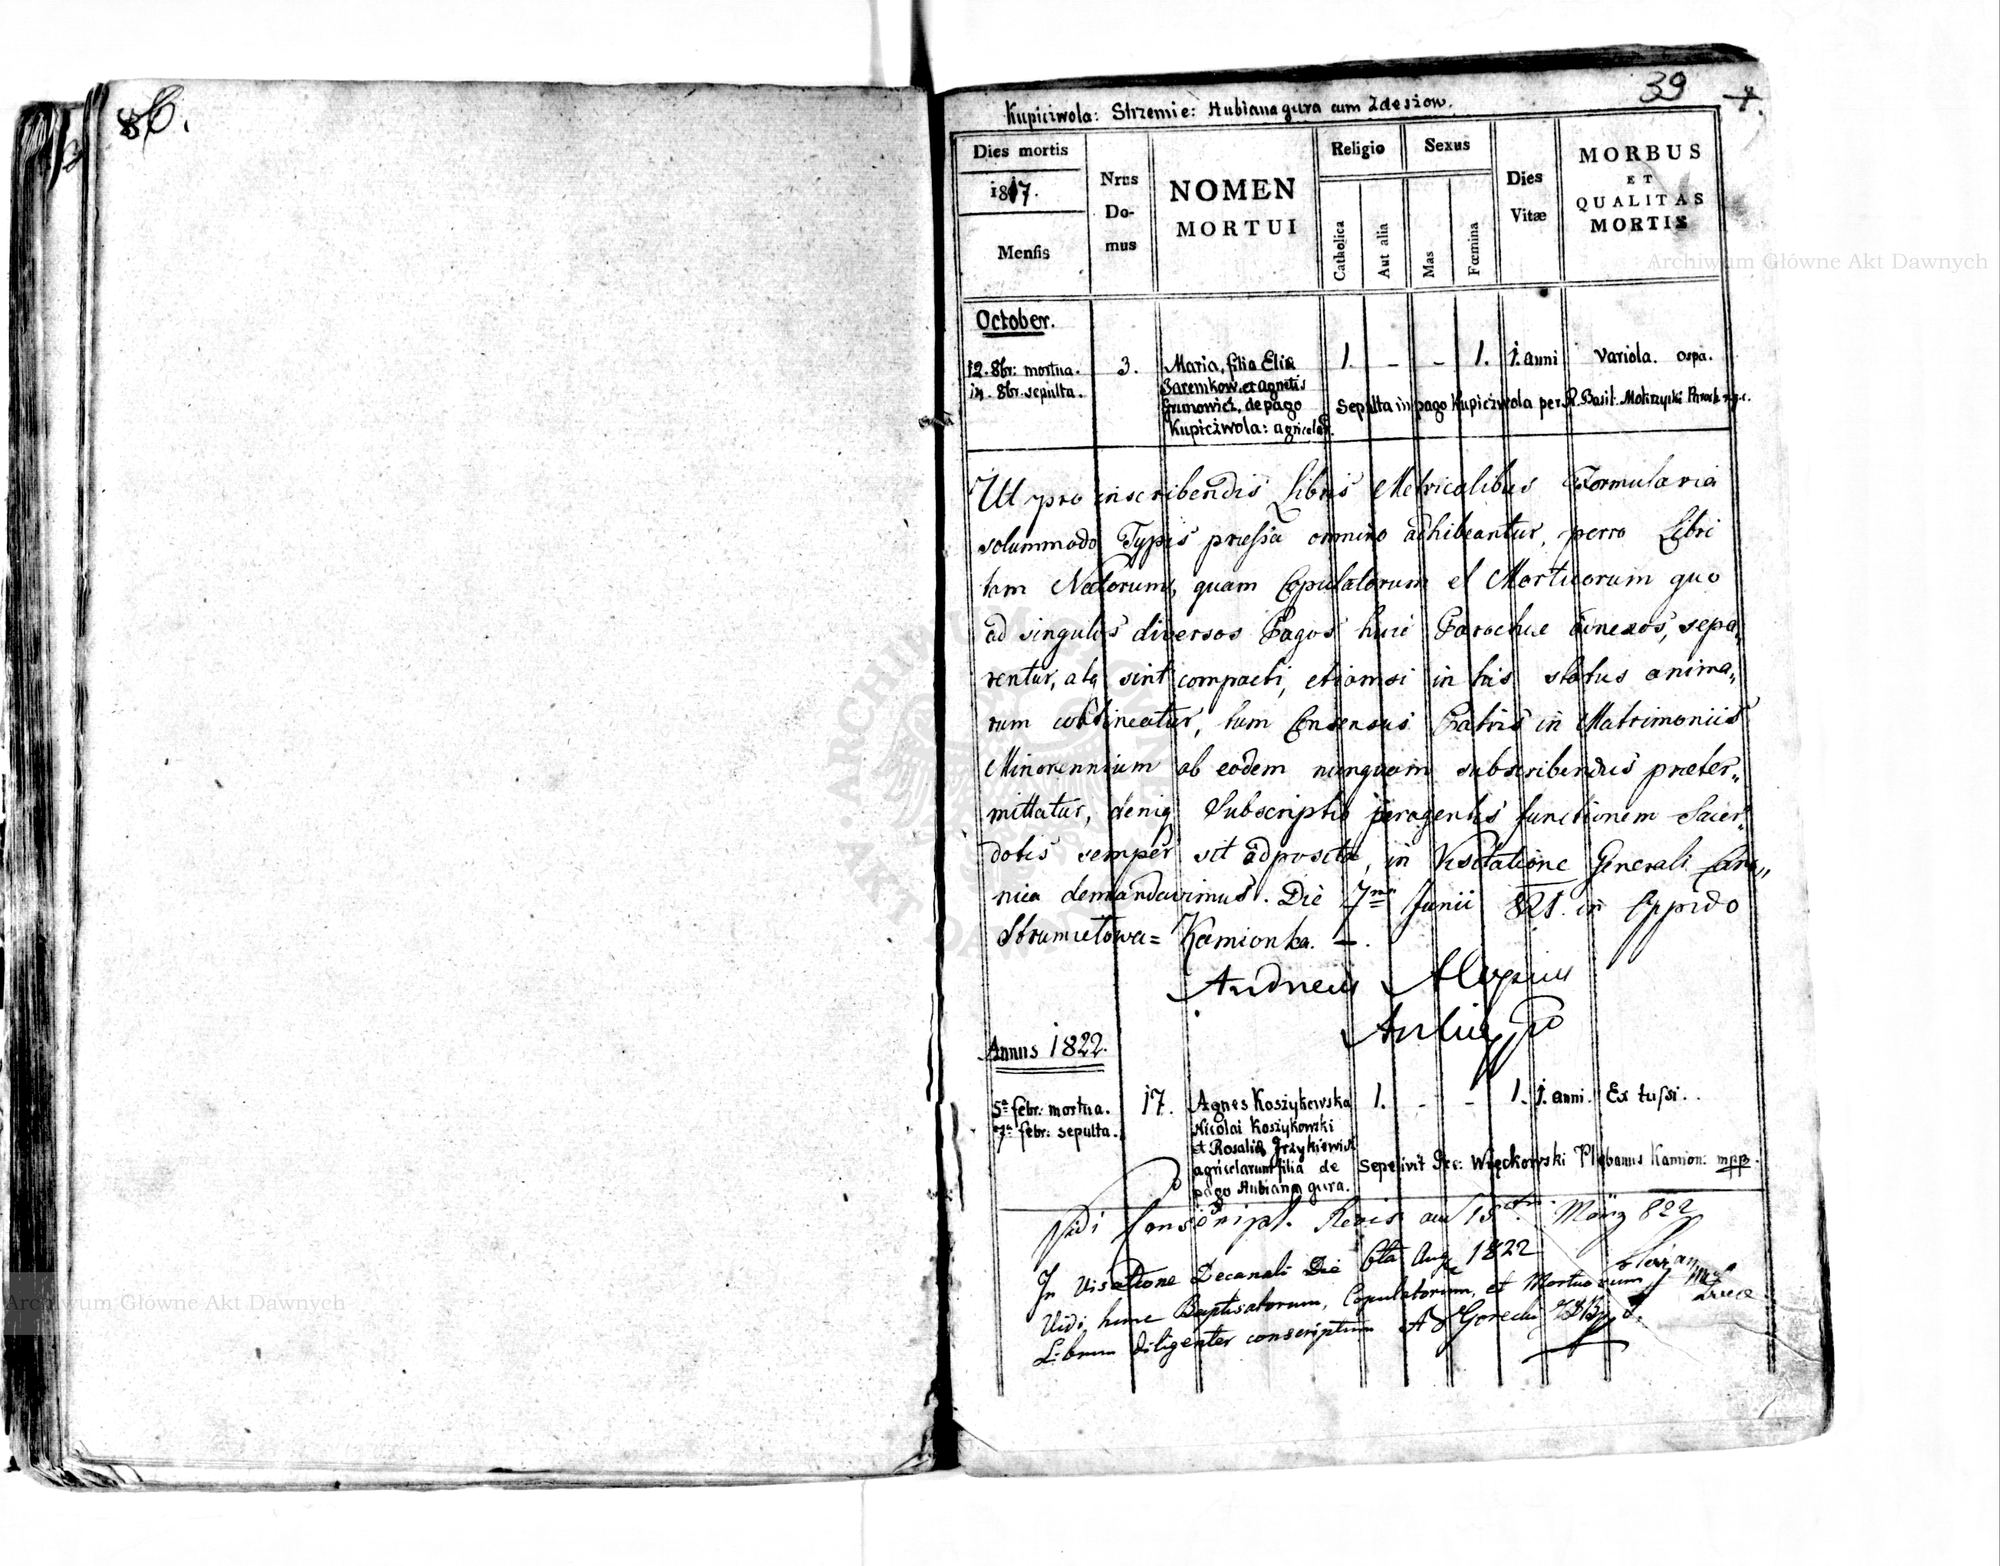 86.
39
7.
Kupiczwola: Strzemie: Hubianagura cum Zdeszow.
Dies mortis
1817.
Mensis
Nrus
Do-
mus
NOMEN
MORTUI
Religio
Catholica
Aut alia
Sexus
Mas
Fœmina
Dies
Vitæ
MORBUS
ET
QUALITAS
MORTIS
October.
12. 8br: mortua. 3. Maria, filia Eliæ 1. - - 1. 1. anni Variola. ospa.
14. 8br. sepulta. Baremkow. et agnetis
Grunowicz, de pago Sepulta in pago Kupiczwola per R. Basil. Mokrzycki Paroch. r.g.c.
Kupiczwola: agricolar.
Ut pro inscribendis Libris Metricalibus Formularia
solummodo Typis præssa omnino adhibeantur, porro Libri
tam Natorum, quam Copulatorum et Mortuorum quo
ad singulos diversos Pagos huic Parochiæ annexos, sepa„
rentur, atq sint compacti, etiamsi in his status anima„
rum contineatur, tum Consensus Patris in Matrimoniis
Minorennium ab eodem nunquam subscribendus præter„
mittatur, deniq Subscriptio peragentis functionem Sacer„
dotis semper sit adposita, in Visitatione Generali Cano„
nica demandavimus. Die 7ma Junii 821. in Oppido
Strumiłowa= Kamionka. —.
Andreas Aloysius
Annus 1822.
5a febr: mortua. 17. Agnes Koszykowska 1. - - 1. 1. anni. Ex tussi..
7a febr: sepulta. Nicolai Koszykowski
et Rosaliæ Jrzykiewicz
agricolarum filia de Sepelivit Frc: Więckowski Plebanus Kamion: mpp.
pago Hubiana gura.
Vidi Conscript. Revis am 15ten März 822
In Visitatione Decanali Die 6ta Aug 1822
Vidi hunc Baptisatorum, Copulatorum, et Mortuorum
Librum diligenter conscriptum
Archiwum Główne Akt Dawnych
Archiwum Główne Akt Dawnych
ARCHIWUM GŁÓWNE AKT DAWNYCH